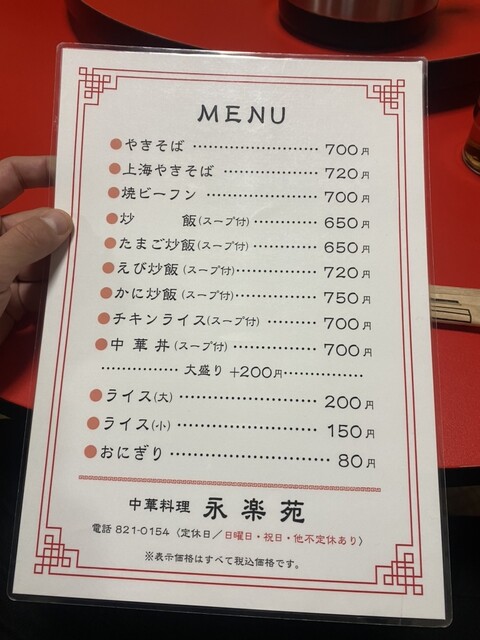 MENU
●やきそば ………………… 700円
●上海やきそば ……………… 720円
●焼ビーフン ………………… 700円
●炒 飯(スープ付) ………… 650円
●たまご炒飯(スープ付) ……… 650円
●えび炒飯(スープ付) ………… 720円
●かに炒飯(スープ付) ………… 750円
●チキンライス(スープ付) …… 700円
●中華丼(スープ付) ………… 700円
………… 大盛り +200円 …………
●ライス(大) ………………… 200円
●ライス(小) ………………… 150円
●おにぎり ………………… 80円
中華料理 永楽苑
電話 821-0154〈定休日/日曜日・祝日・他不定休あり〉
※表示価格はすべて税込価格です。